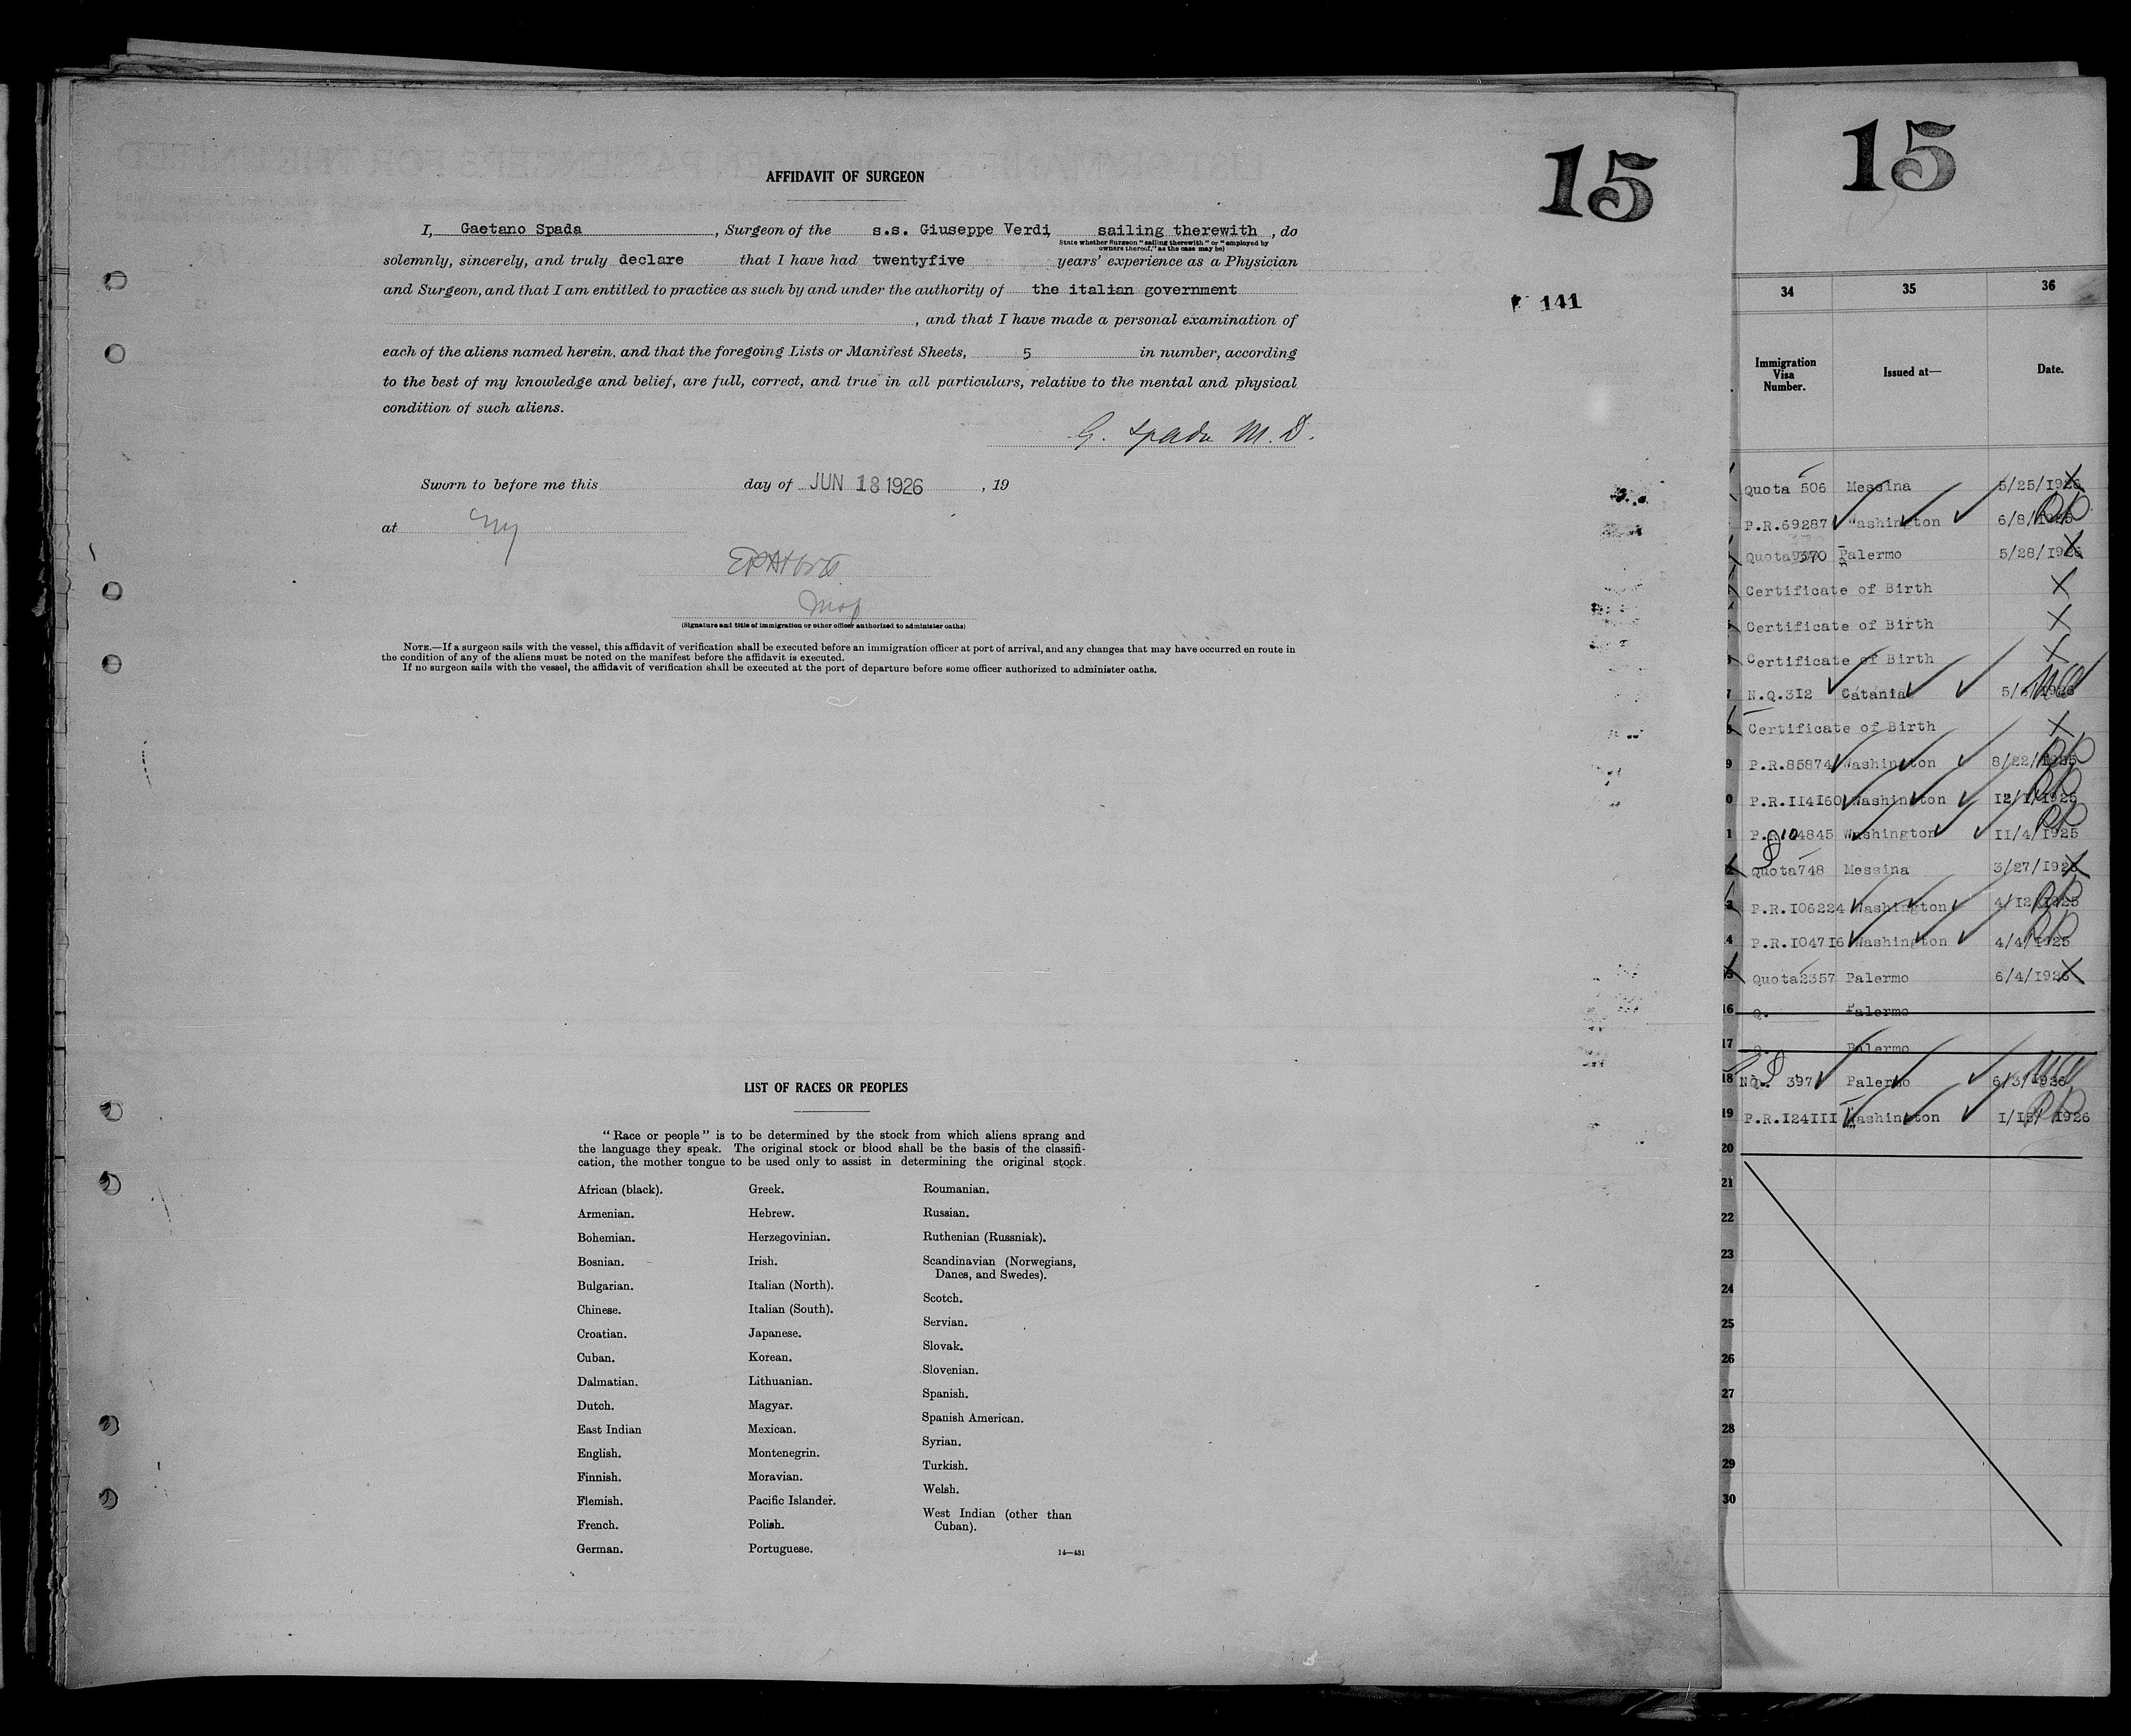 15
AFFIDAVIT OF SURGEON
I, Gaetano Spada , Surgeon of the s.s. Giuseppe Verdi, sailing therewith , do
State whether Surgeon "sailing therewith" or "employed by
owners thereof," as the case may be)
solemnly, sincerely, and truly declare that I have had twentyfive years' experience as a Physician
and Surgeon, and that I am entitled to practice as such by and under the authority of the italian government
, and that I have made a personal examination of
141
each of the aliens named herein, and that the foregoing Lists or Manifest Sheets, 5 in number, according
to the best of my knowledge and belief, are full, correct, and true in all particulars, relative to the mental and physical
condition of such aliens.
G. Spada M.D.
Sworn to before me this day of JUN 18 1926 , 19
at NY
(Signature and title of immigration or other officer authorized to administer oaths)
NOTE.—If a surgeon sails with the vessel, this affidavit of verification shall be executed before an immigration officer at port of arrival, and any changes that may have occurred en route in
the condition of any of the aliens must be noted on the manifest before the affidavit is executed.
If no surgeon sails with the vessel, the affidavit of verification shall be executed at the port of departure before some officer authorized to administer oaths.
LIST OF RACES OR PEOPLES
"Race or people" is to be determined by the stock from which aliens sprang and
the language they speak. The original stock or blood shall be the basis of the classifi-
cation, the mother tongue to be used only to assist in determining the original stock.
African (black).
Armenian.
Bohemian.
Bosnian.
Bulgarian.
Chinese.
Croatian.
Cuban.
Dalmatian.
Dutch.
East Indian
English.
Finnish.
Flemish.
French.
German.
Greek.
Hebrew.
Herzegovinian.
Irish.
Italian (North).
Italian (South).
Japanese.
Korean.
Lithuanian.
Magyar.
Mexican.
Montenegrin.
Moravian.
Pacific Islander.
Polish.
Portuguese.
Roumanian.
Russian.
Ruthenian (Russniak).
Scandinavian (Norwegians,
Danes, and Swedes).
Scotch.
Servian.
Slovak.
Slovenian.
Spanish.
Spanish American.
Syrian.
Turkish.
Welsh.
West Indian (other than
Cuban).
14—431
15
34 35 36
Immigration
Visa
Number.
Issued at—
Date.
Quota 506 Messina 5/25/1926
P.R.69287 Washington 6/8/1925
Quota 370 Palermo 5/28/1926
Certificate of Birth X
Certificate of Birth X
Certificate of Birth X
7 N.Q.312 Catania 5/ /1926
8 Certificate of Birth X
9 P.R.85874 Washington 8/22/1925
0 P.R.114160 Washington 12/1/1925
1 P.R.104845 Washington 11/4/1925
Quota748 Messina 3/27/1926
3 P.R.106224 Washington 4/12/1925
4 P.R.104716 Washington 4/4/1925
15 Quota2357 Palermo 6/4/1926
16 Q. Palermo
17 Q. Palermo
18 NQ. 397 Palermo 6/3/1926
19 P.R.124111 Washington 1/12/1926
20
21
22
23
24
25
26
27
28
29
30